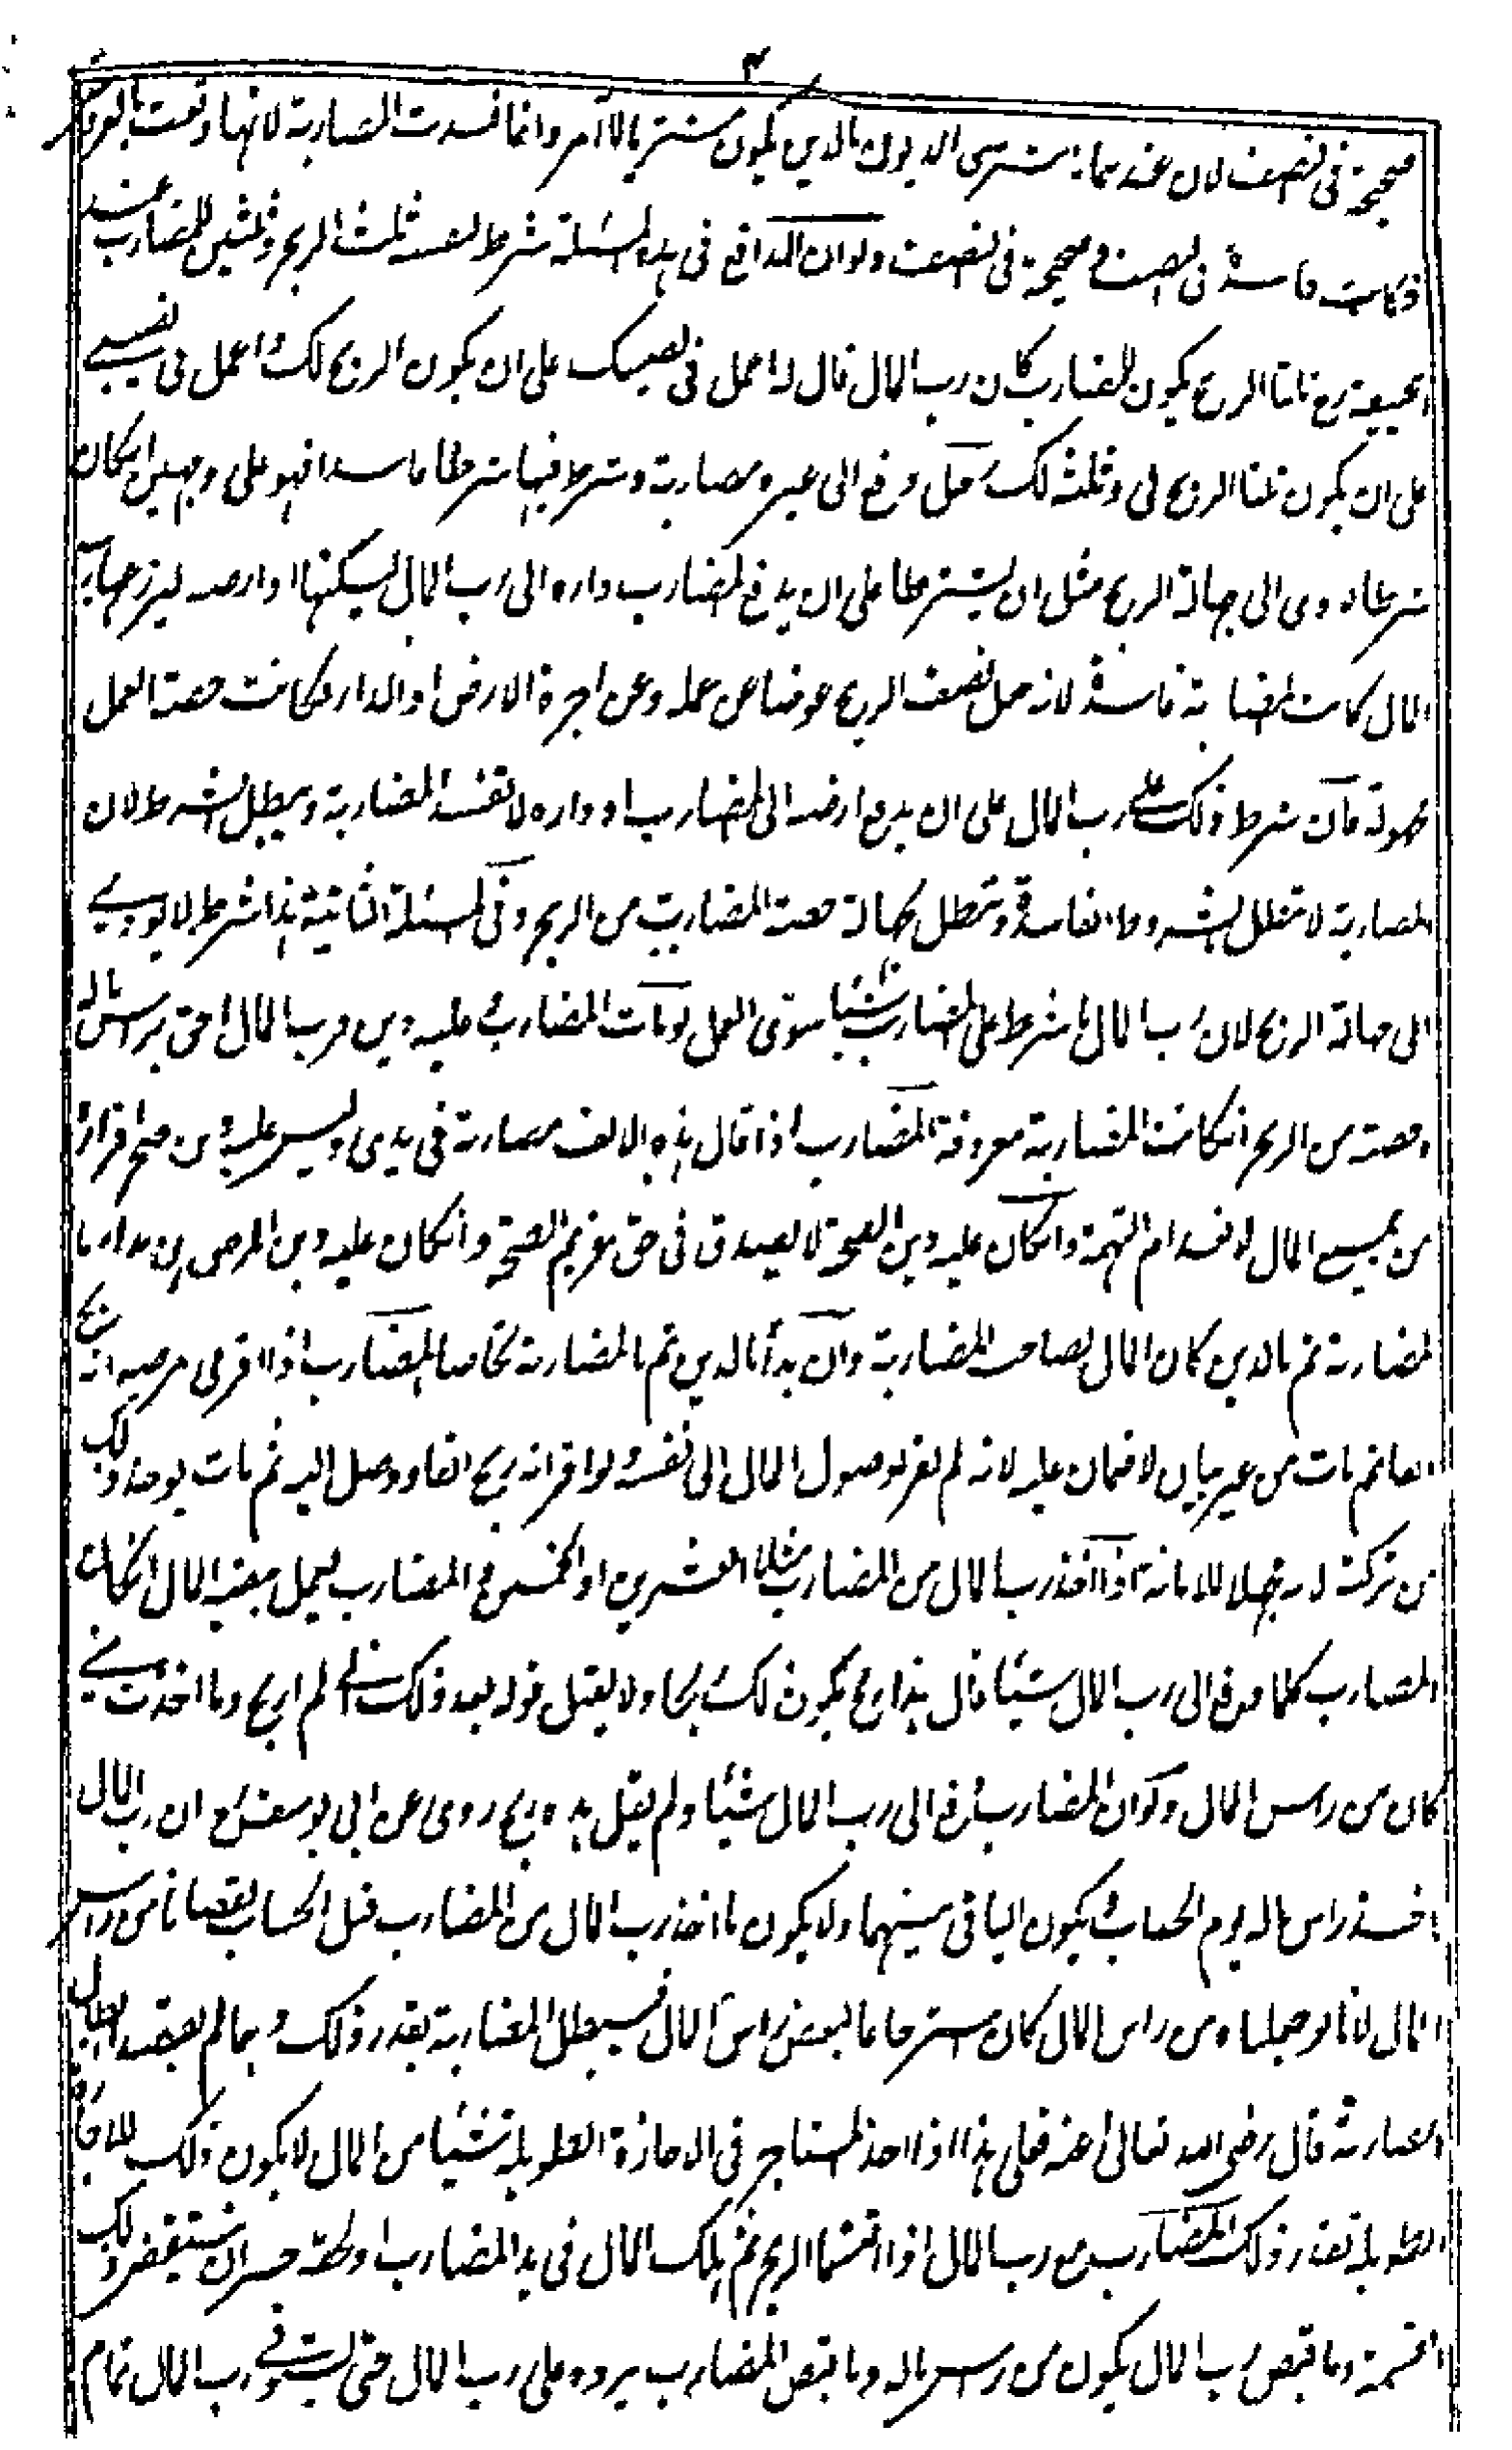 ٣
صحيحة في النصف لان عندهما يشترى الديون بالدين يكون مشتريا للآمر وانما فسدت المضاربة لانها وقعت بالعروض
فكانت فاسدة في النصف وصحيحة في النصف ولو ان الدافع في هذه المسئلة شرط لنفسه ثلث الربح وثلثين للمضارب عند
ابيحنيفة رح ثلثا الربح يكون للمضارب كان رب المال قال له اعمل في نصيبك على ان يكون الربح لك واعمل في نصيبي
على ان يكون ثلثا الربح لي وثلثه لك رجل دفع الى غيره مضاربة وشرط فيها شرطا فاسدا فهو على وجهين ان كان
شرطا يؤدى الى جهالة الربح مثل ان يشترطا على ان يدفع المضارب داره الى رب المال ليسكنها او ارضه ليزرعها رب
المال كانت المضاربة فاسدة لانه جعل نصف الربح عوضا عن عمله وعن اجرة الارض او الدار فكانت حصة العمل
مجهولة فان شرط ذلك على رب المال على ان يدفع ارضه الى المضارب او داره لا تفسد المضاربة ويبطل الشرط لان
المضاربة لا تبطل بالشروط الفاسدة وتبطل بجهالة حصة المضارب من الربح وفي المسئلة الثانية هذا شرط لا يؤدي
الى جهالة الربح لان رب المال ما شرط على المضارب شيئا سوى العمل لو مات المضارب وعليه دين فرب المال احق براس ماله
وحصته من الربح ان كانت المضاربة معروفة المضارب اذا قال هذه الالف مضاربة في يدى وليس عليه دين صح اقراره
من جميع المال لانعدام التهمة وان كان عليه دين الصحة لا يصدق في حق غريم الصحة وان كان عليه دين المرض ان بدأ با
لمضاربة ثم بالدين كان المال لصاحب المضاربة وان بدأ بالدين ثم بالمضاربة تحاصا المضارب اذا اقر في مرضه انه ربح
الفا ثم مات من غير بيان لا ضمان عليه لانه لم يقر بوصول المال الى نفسه ولو اقر انه ربح الفا ووصل اليه ثم مات يوخذ ذلك
من تركته لانه مجهلا للامانة اذا اخذ رب المال من المضارب مثلا العشرين او الخمسين والمضارب يعمل ببقية المال ان كان
المضارب كلما دفع الى رب المال شيئا قال هذا ربح يكون ذلك ربحا ولا يقبل قوله بعد ذلك اني لم اربح وما اخذت مني
كان من راس المال ولو ان المضارب دفع الى رب المال شيئا ولم يقل هذه ربح روى عن ابي يوسف رح ان رب المال
ياخذ راس ماله يوم الحساب ويكون الباقي بينهما ولا يكون ما اخذ رب المال من المضارب قبل الحساب نقصانا من راس
المال لانا لو جعلناه من راس المال كان مسترجعا لبعض راس المال فيبطل المضاربة بقدر ذلك وهما لم يقصدا ابطال
المضاربة قال رضي الله تعالى عنه فعلى هذا اذا اخذ المستاجر في الاجارة الطويلة شيئا من المال لا يكون ذلك للاجارة
الطويلة بقدر ذلك المضارب مع رب المال اذا اقتسما الربح ثم هلك المال في يد المضارب او لحقه خسران ينتقض تلك
القسمة وما قبض رب المال يكون من راس ماله وما قبض المضارب يرده على رب المال حتى يستوفي رب المال تمام